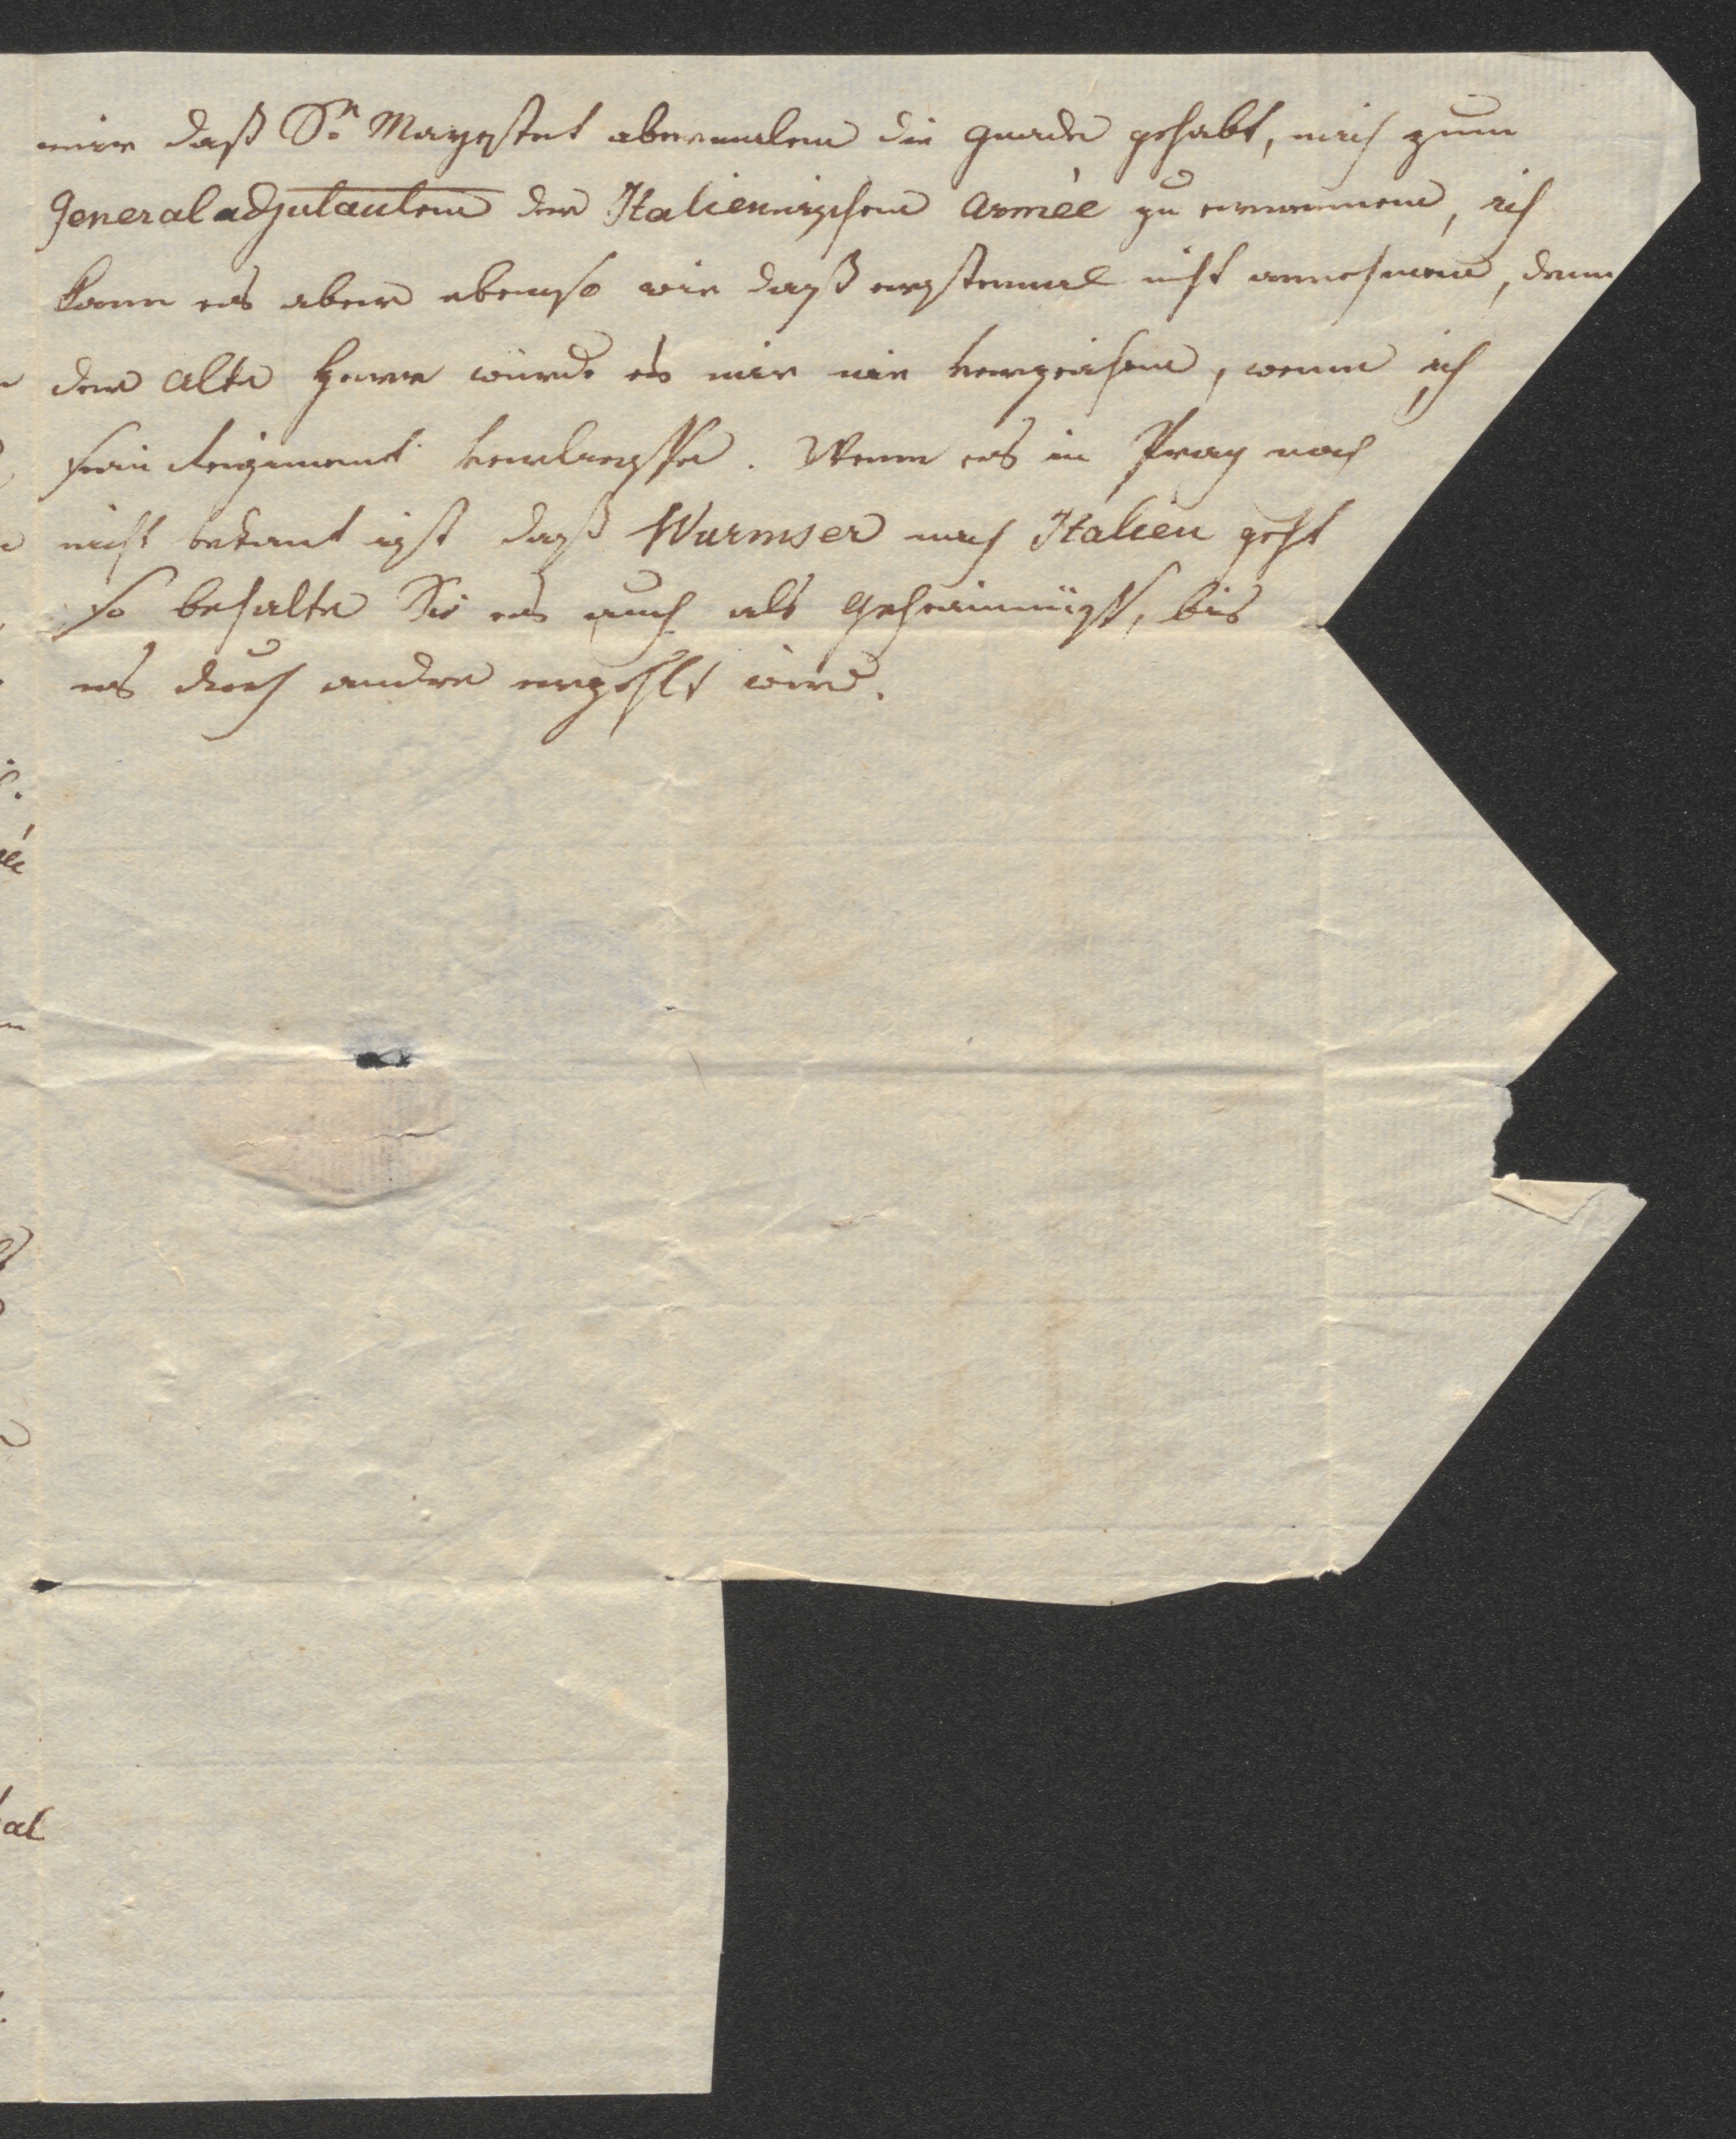 mir daß Sr. Mayestet abermalen die gnade gehabt, mich zum
Generaladjutanten der Italienischen Armèe zu ernennen, ich
kann es aber ebenso wie daß erstemal nicht annehmen, denn
der alte Herr würde es mir nie verzeihen, wenn ich
sein Regiment verliesse. Wenn es in Prag noch
nicht bekant ist daß Wurmser nach Italien geht
so behalte Sie es auch als geheimnüß, bis
es durch andre erzehlt wird.